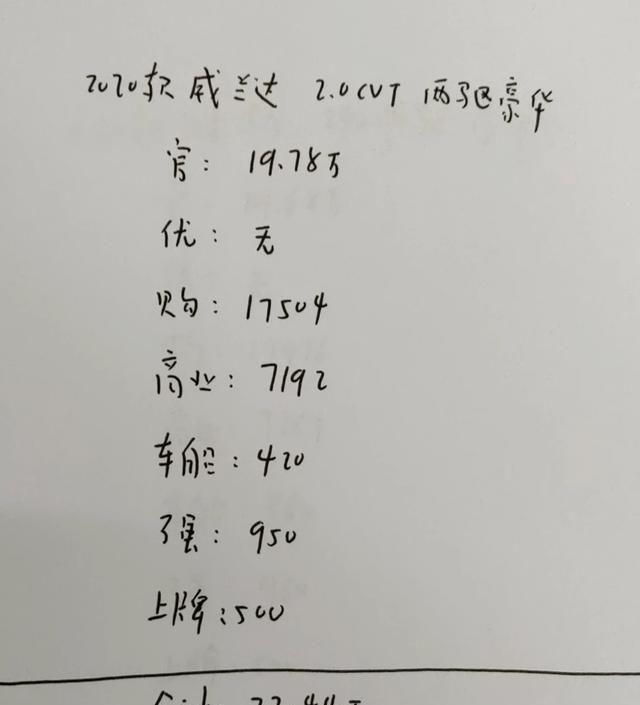 2020款威兰达 2.0CVT 两驱豪华
官: 19.78万
优: 无
购: 17504
商业: 7192
车船: 420
强: 950
上牌: 500